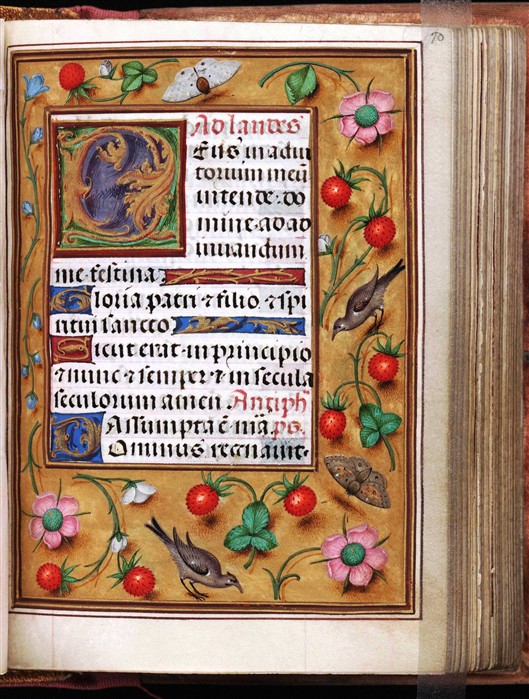 70
Ad laudes
Deus in adiu
torium meū
intende. do
mine ad ad
iuuandum
me festina
Gloria patri ⁊ filio ⁊ spi
ritui sancto
Sicut erat in principio
⁊ nunc ⁊ semper ⁊ in secula
seculorum amen. Antiph
Assumpta ē mā. ps.
Dominus regnauit.